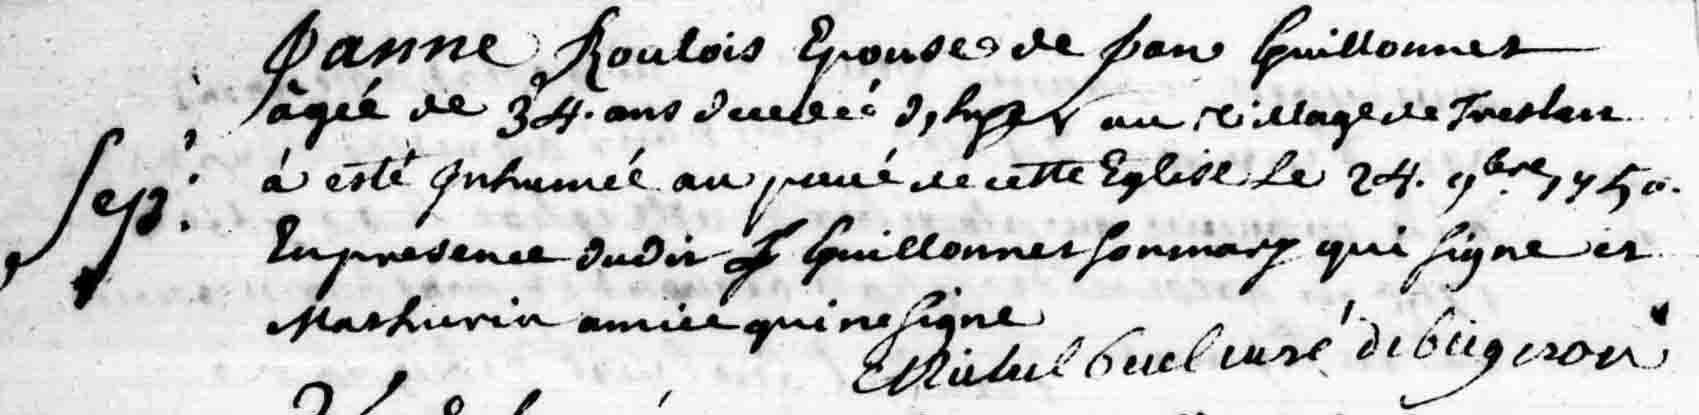 Janne Roulois Epouse de Jan Guillonnet
âgée de 34. ans decedé d'hyer au village de Treslan
Sep.
à esté Inhumée au pavé de cette Eglise le 24. 9bre 1750.
En presence dudit J Guillonnet son mary qui signe et
Mathurin amice qui ne signe
Michel curé de